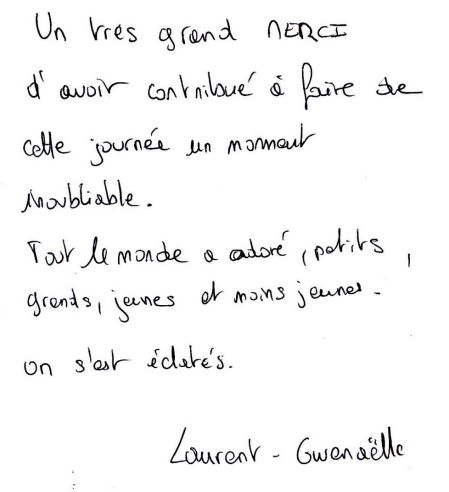 Un très grand MERCI
d'avoir contribué à faire de
cette journée un moment
inoubliable.
Tout le monde a adoré, petits,
grands, jeunes et moins jeunes.
on s'est éclatés.
Laurent - Gwenaëlle